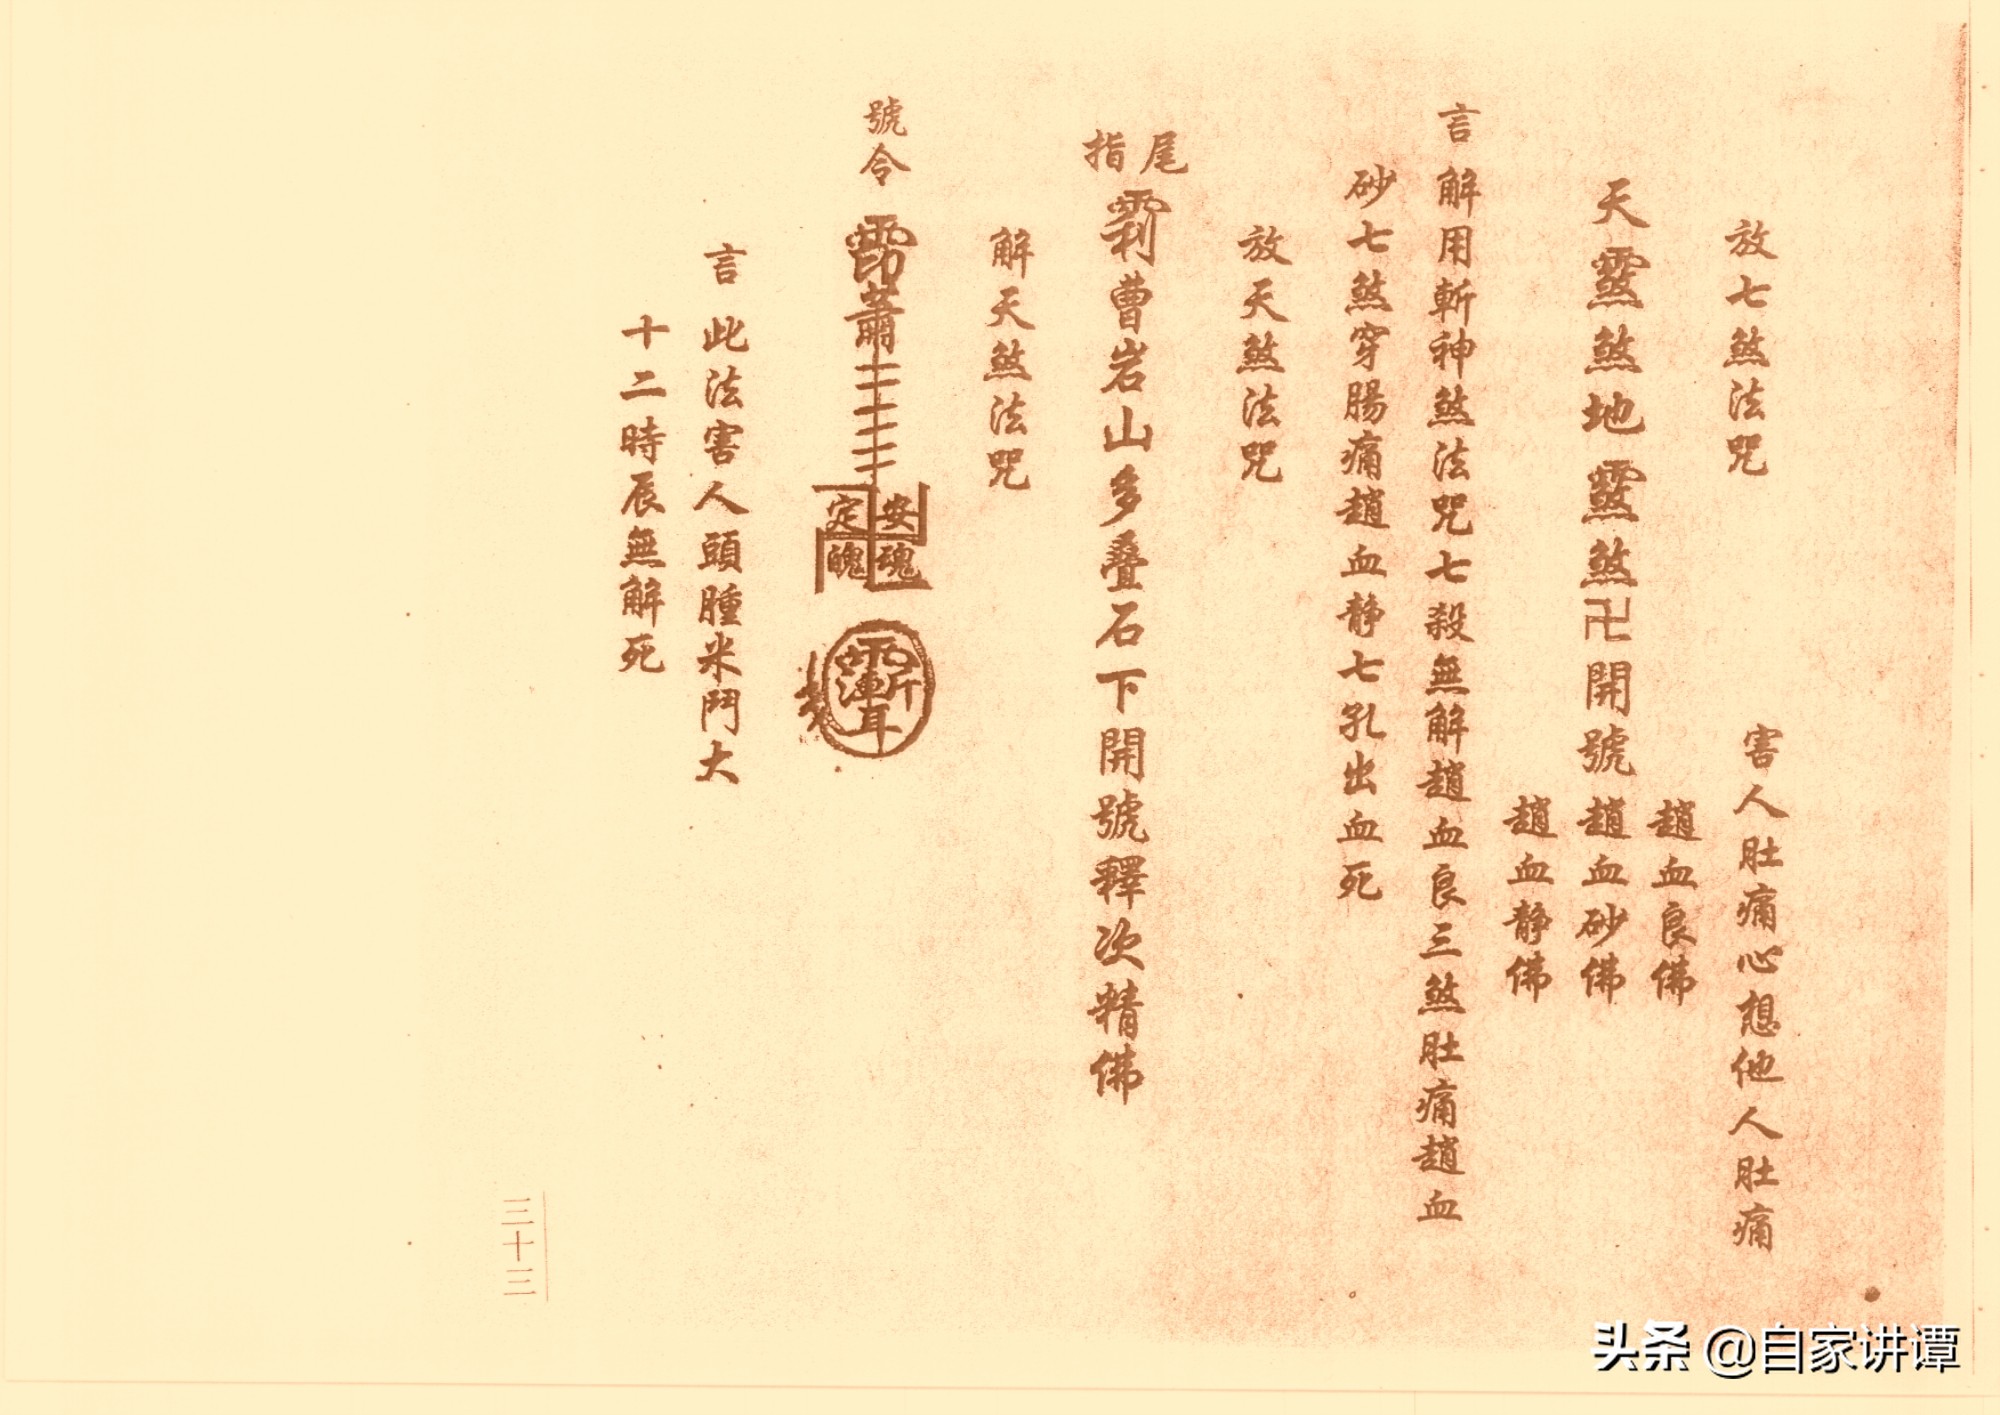 放七煞法咒
害人肚痛心想他人肚痛
天煞地煞卍開號
趙血良佛
趙血砂佛
趙血靜佛
言解用斬神煞法咒七殺無解趙血良三煞肚痛趙血
砂七煞穿腸痛趙血靜七孔出血死
放天煞法咒
尾指
曹岩山多叠石下開號釋次精佛
解天煞法咒
號令
安魂
定魄
言此法害人頭腫米鬥大
十二時辰無解死
三十三
头条 @自家讲谭